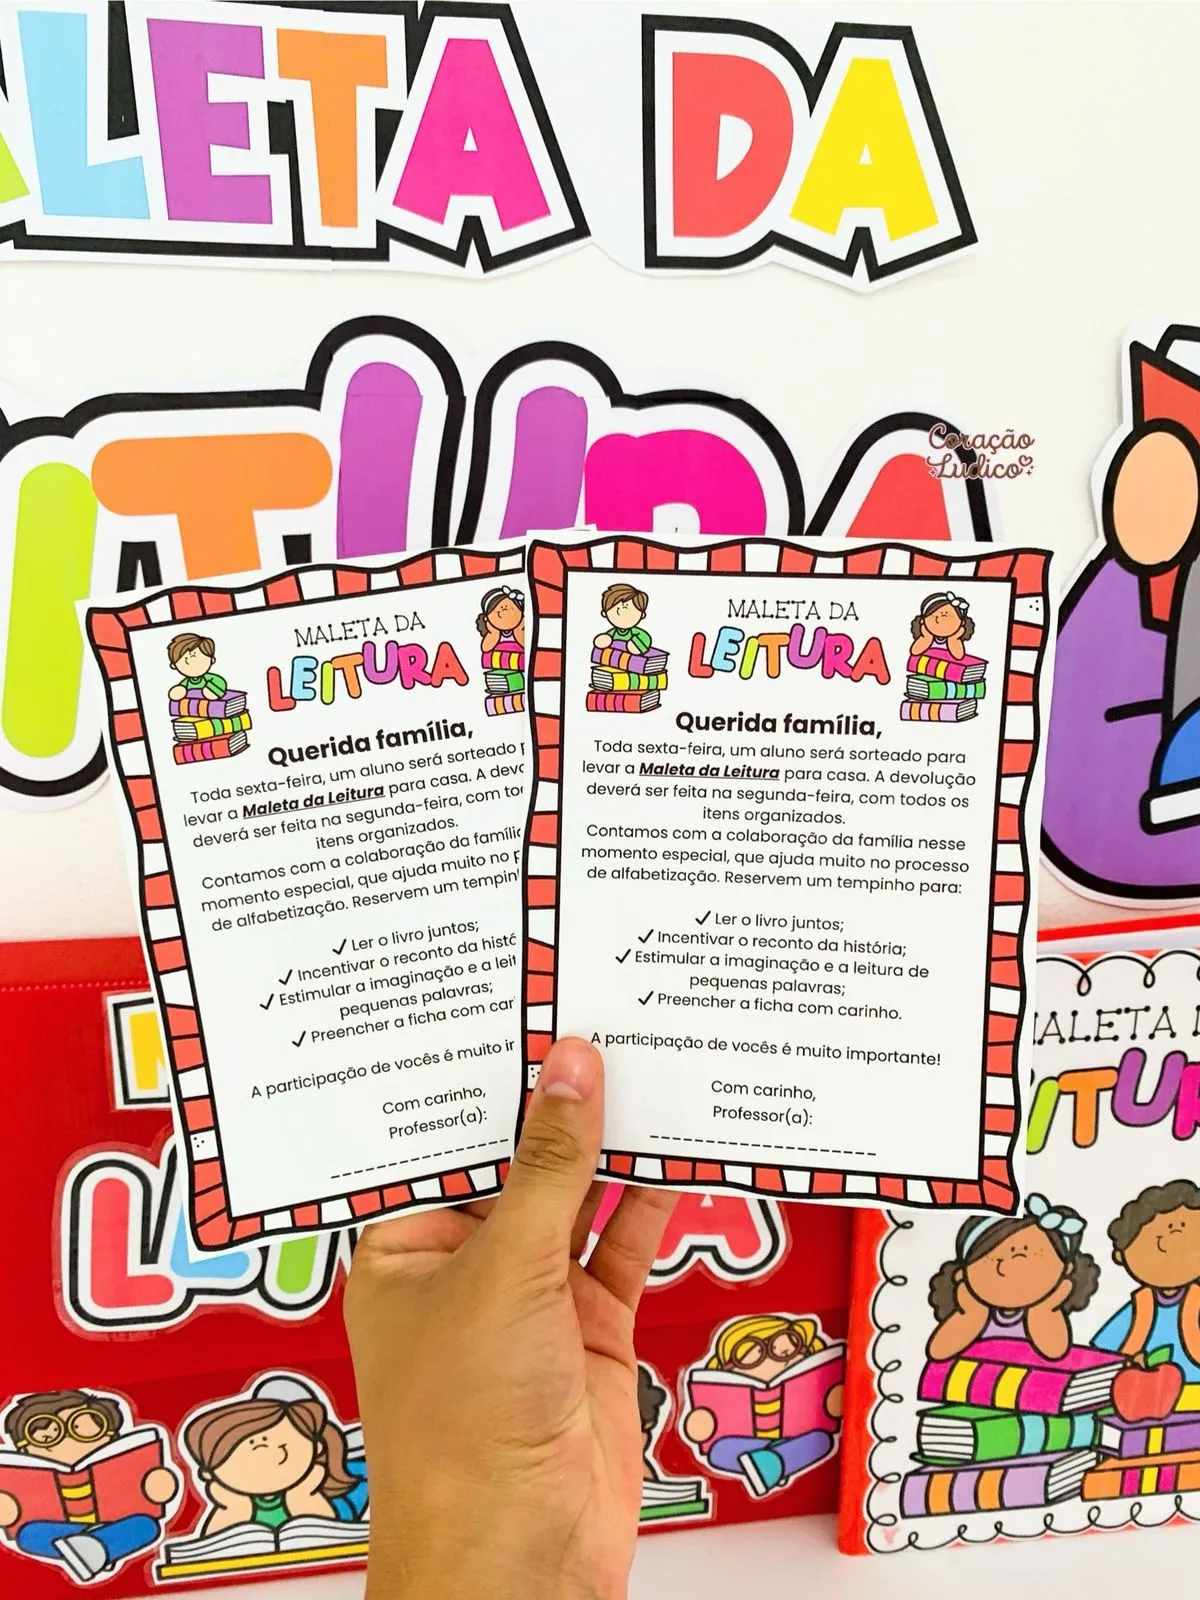 LETA DA
ITURA
Coração
Lúdico
MALETA DA
LEITURA
Querida família,
Toda sexta-feira, um aluno será sorteado
levar a Maleta da Leitura para casa. A
deverá ser feita na segunda-feira, com
itens organizados.
Contamos com a colaboração da
momento especial, que ajuda muito no
de alfabetização. Reservem um
✓ Ler o livro juntos;
✓ Incentivar o reconto da
✓ Estimular a imaginação e a
pequenas palavras;
✓ Preencher a ficha com
A participação de vocês é muito
Com carinho,
Professor(a):
MALETA DA
LEITURA
Querida família,
Toda sexta-feira, um aluno será sorteado para
levar a Maleta da Leitura para casa. A devolução
deverá ser feita na segunda-feira, com todos os
itens organizados.
Contamos com a colaboração da família nesse
momento especial, que ajuda muito no processo
de alfabetização. Reservem um tempinho para:
✓ Ler o livro juntos;
✓ Incentivar o reconto da história;
✓ Estimular a imaginação e a leitura de
pequenas palavras;
✓ Preencher a ficha com carinho.
A participação de vocês é muito importante!
Com carinho,
Professor(a):
ALETA
ITUR